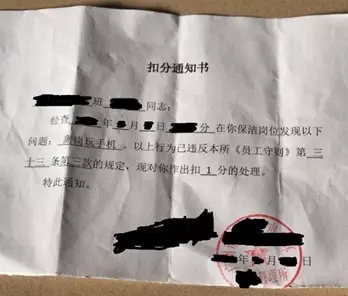 扣分通知书
班 同志：
经查 年 月 日 分 在你保洁岗位发现以下
问题：离岗玩手机 。以上行为已违反本所《员工守则》第 三
十三 条第三款的规定，现对你作出扣 1 分的处理。
特此通知。
年 月 日
管理所